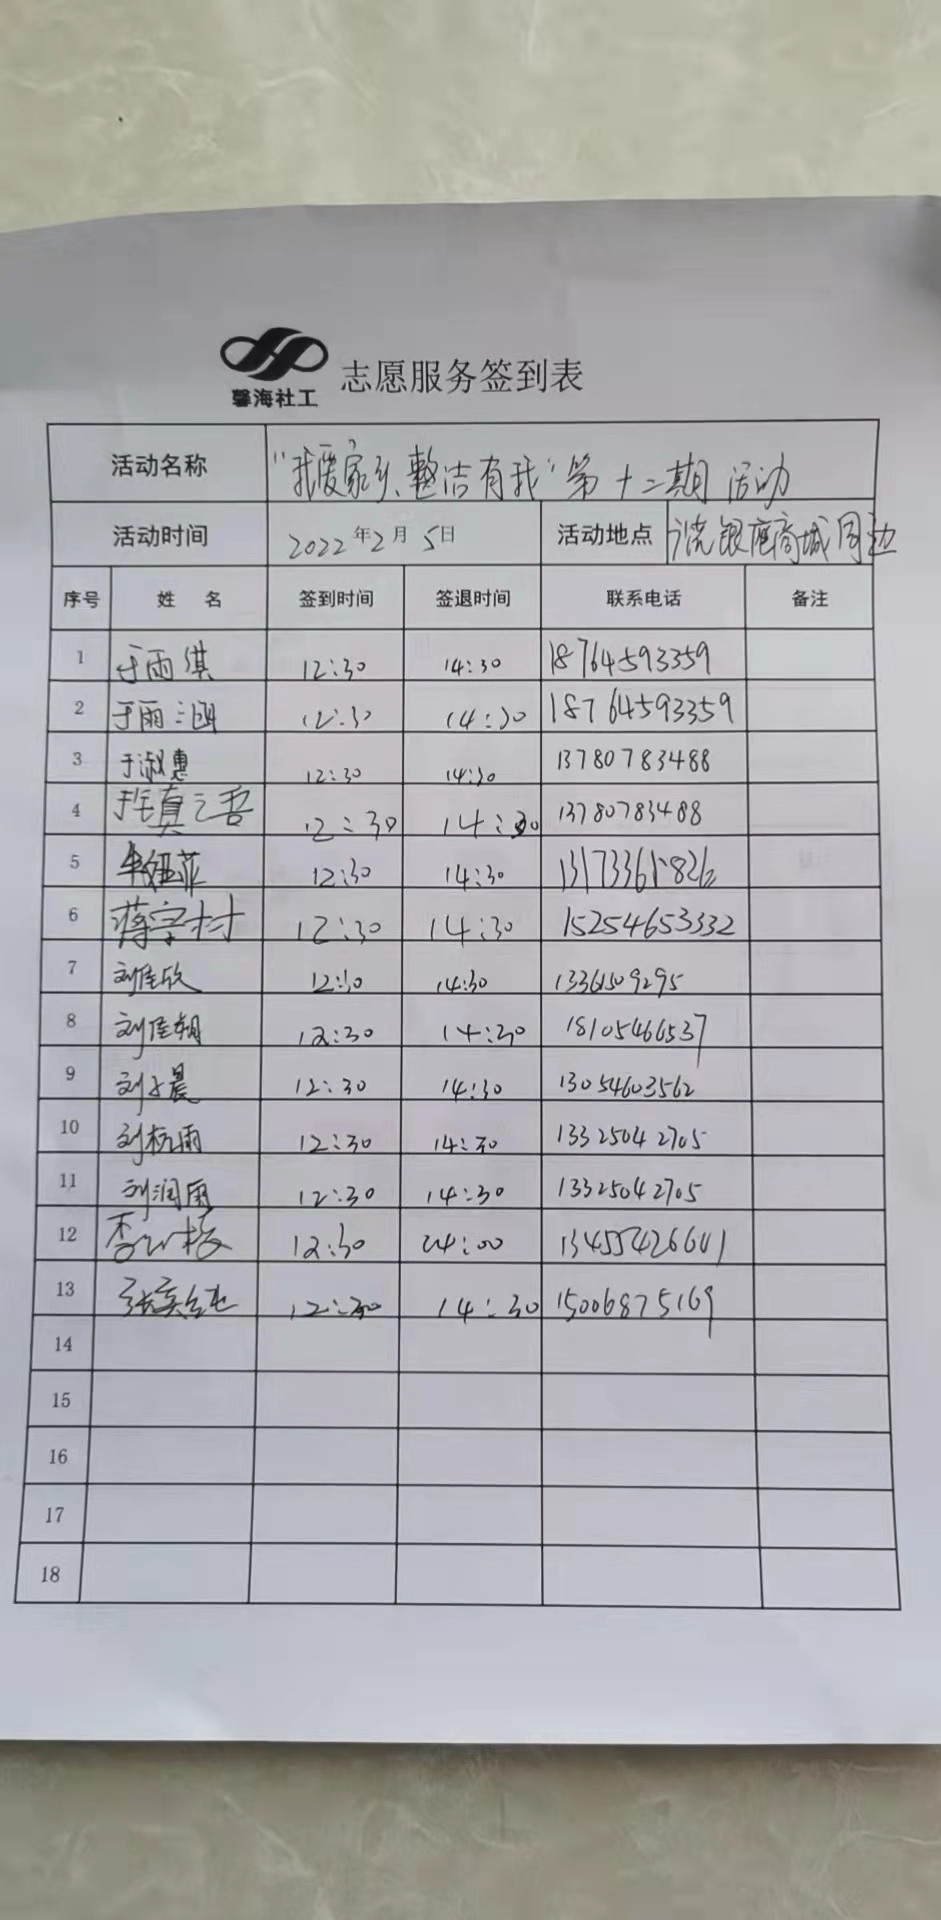 馨海社工 志愿服务签到表
活动名称 “我爱家乡、整洁有我”第十二期活动
活动时间 2022年2月5日 活动地点 银座商城周边
序号 姓 名 签到时间 签退时间 联系电话 备注
1 于雨淇 12:30 14:30 18764593359
2 于雨涵 12:30 14:30 18764593359
3 于淑惠 12:30 14:30 13780783488
4 12:30 14:30 13780783488
5 12:30 14:30
6 蒋宇村 12:30 14:30 15254653332
7 刘佳欣 12:30 14:30 13361509295
8 刘佳朝 12:30 14:30 18105466537
9 刘子晨 12:30 14:30 13054603562
10 刘杭雨 12:30 14:30 13325042705
11 刘润雨 12:30 14:30 13325042705
12 12:30 14:00 13455426601
13 12:30 14:30 15006875169
14
15
16
17
18